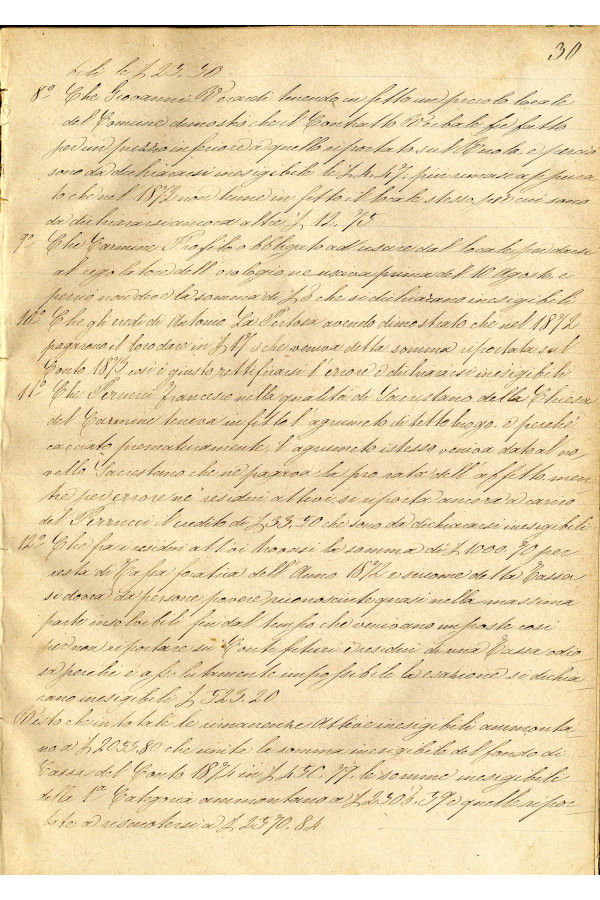 30
bili le £ 25.30
8° Che Giovanni Verardi tenendo in fitto un piccolo locale
del Comune dimostrò che il Contratto Verbale fu fatto
per un prezzo inferiore a quello riportato sul Ruolo e perciò
sono da dichiararsi inesigibili le £ 4.47. pur rimase appura-
to che nel 1873 non tenne in fitto il locale stesso per cui sono
da dichiararsi ancora altre £ 12.75
9° Che Carmine Profeto obbligato ad usare del locale per darsi
al regolatore dell'orologio ne usciva prima del 10 Agosto e
perciò non deve la somma di £ 8 che si dichiarano inesigibili
10° Che gli eredi di Antonio La Pertosa avendo dimostrato che nel 1872
pagarono il loro dare in £ 17 che veniva detta somma riportata sul
Conto 1873 così è giusto rettificarsi l'errore e dichiararsi inesigibili
11° Che Perrucci Francesco nella qualità di Sacrestano della Chiesa
del Carmine teneva in fitto l'agrumeto di detto luogo. e perchè
cacciato prematuramente, l'agrumeto istesso veniva dato al no-
vello Sacrestano che ne pagava la pro rata dell'affitto men-
tre per errore ne' residui attivi si riporta ancora a carico
del Perrucci il credito di £ 33.50 che sono da dichiararsi inesigibili
12° Che fra i residui attivi trovasi la somma di £ 1000.70 per
resta di Tassa focatica dell'Anno 1872 e siccome detta Tassa
si doveva da persone povere riconosciute quasi nella massima
parte insolvibili fin dal tempo che venivano imposte così
per non riportare su Conti futuri i residui di una Tassa odio-
sa perchè è assolutamente impossibile la esazione si dichia-
rano inesigibili £ 523.20
Visto che in totale le rimanenze Attive inesigibili ammonta-
no a £ 2055.80 che unite la somma inesigibile del fondo di
Cassa del Conto 1874 in £ 450.77. le somme inesigibili
della 1a Categoria ammontano a £ 2508.59 e quelle ripor-
tate a riscuotersi a £ 2570.84